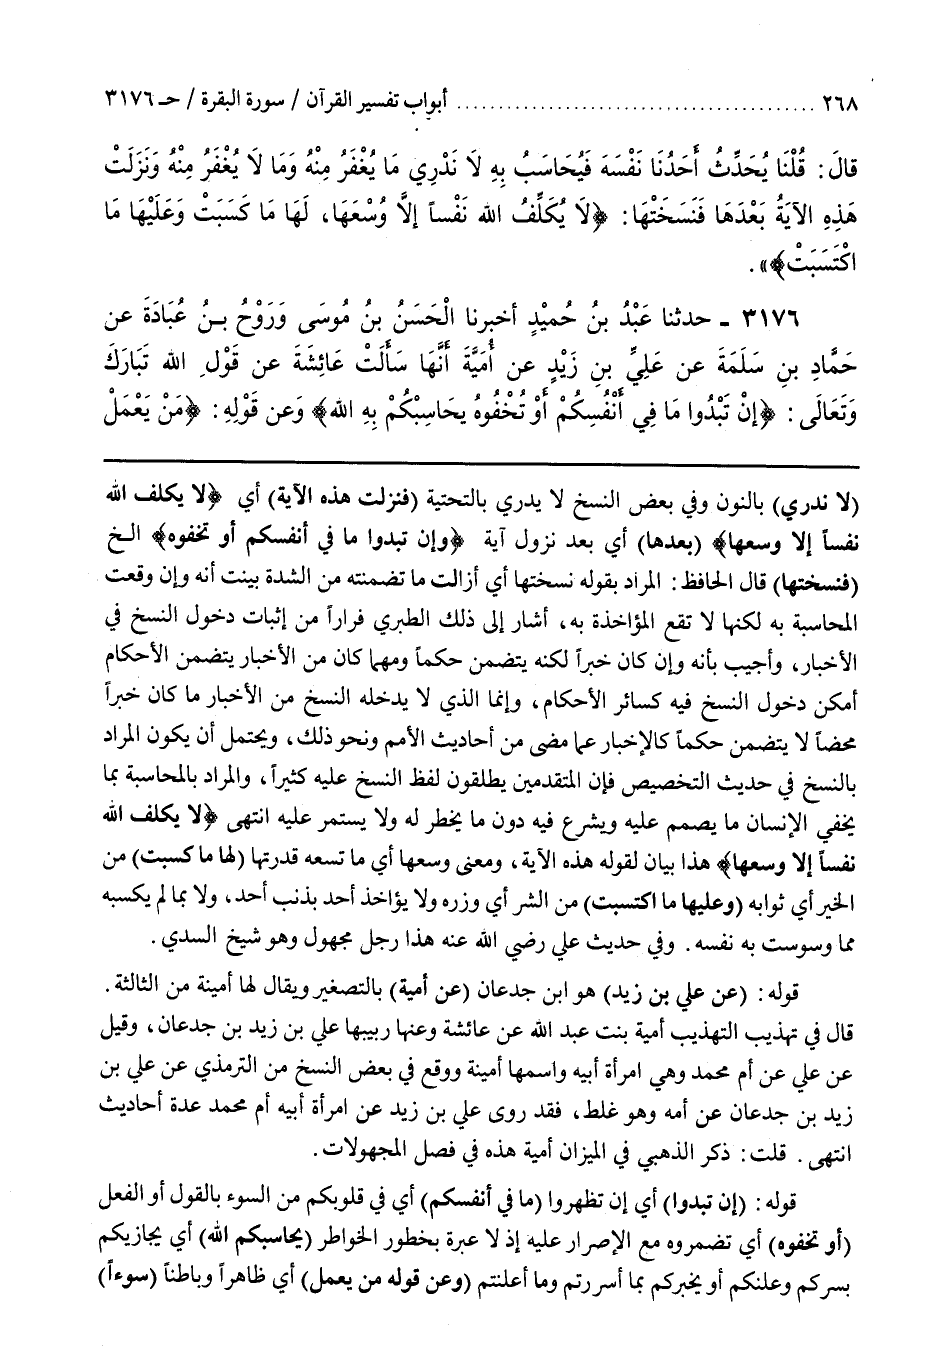 ٢٦٨ ........................................ أبواب تفسير القرآن / سورة البقرة / حـ ٣١٧٦
قالَ: قُلْنَا يُحَدِّثُ أَحَدُنَا نَفْسَهَ فَيُحَاسَبُ بِهِ لَا نَدْرِي مَا يُغْفَرُ مِنْهُ وَمَا لَا يُغْفَرُ مِنْهُ وَنَزَلَتْ
هَذِهِ الآيَةُ بَعْدَهَا فَنَسَخَتْهَا: ﴿لَا يُكَلِّفُ الله نَفْساً إلَّا وُسْعَهَا، لَهَا مَا كَسَبَتْ وَعَلَيْهَا مَا
اكْتَسَبَتْ﴾».
٣١٧٦ ـ حدثنا عَبْدُ بنُ حُميْدٍ أخبرنا الْحَسَنُ بنُ مُوسَى وَرَوْحُ بـنُ عُبَادَةَ عن
حَمَّادِ بنِ سَلَمَةَ عن عَلِيِّ بنِ زَيْدٍ عن أُمَيَّةَ أَنَّهَا سَأَلَتْ عَائِشَةَ عن قَوْلِ الله تَبَارَكَ
وَتَعَالَى: ﴿إنْ تَبْدُوا مَا فِي أَنْفُسِكُمْ أَوْ تُخْفُوهُ يحَاسِبْكُمْ بِهِ الله﴾ وَعن قَوْلِهِ: ﴿مَنْ يَعْمَلْ
(لا ندري) بالنون وفي بعض النسخ لا يدري بالتحتية (فنزلت هذه الآية) أي ﴿لا يكلف الله
نفساً إلا وسعها﴾ (بعدها) أي بعد نزول آية ﴿وإن تبدوا ما في أنفسكم أو تخفوه﴾ الخ
(فنسختها) قال الحافظ: المراد بقوله نسختها أي أزالت ما تضمنته من الشدة بينت أنه وإن وقعت
المحاسبة به لكنها لا تقع المؤاخذة به، أشار إلى ذلك الطبري فراراً من إثبات دخول النسخ في
الأخبار، وأجيب بأنه وإن كان خبراً لكنه يتضمن حكماً ومهما كان من الأخبار يتضمن الأحكام
أمكن دخول النسخ فيه كسائر الأحكام، وإنما الذي لا يدخله النسخ من الأخبار ما كان خبراً
محضاً لا يتضمن حكماً كالإخبار عما مضى من أحاديث الأمم ونحو ذلك، ويحتمل أن يكون المراد
بالنسخ في حديث التخصيص فإن المتقدمين يطلقون لفظ النسخ عليه كثيراً، والمراد بالمحاسبة بما
يخفي الإنسان ما يصمم عليه ويشرع فيه دون ما يخطر له ولا يستمر عليه انتهى ﴿لا يكلف الله
نفساً إلا وسعها﴾ هذا بيان لقوله هذه الآية، ومعنى وسعها أي ما تسعه قدرتها (لها ما كسبت) من
الخير أي ثوابه (وعليها ما اكتسبت) من الشر أي وزره ولا يؤاخذ أحد بذنب أحد، ولا بما لم يكسبه
مما وسوست به نفسه. وفي حديث علي رضي الله عنه هذا رجل مجهول وهو شيخ السدي.
قوله: (عن علي بن زيد) هو ابن جدعان (عن أمية) بالتصغير ويقال لها أمينة من الثالثة.
قال في تهذيب التهذيب أمية بنت عبد الله عن عائشة وعنها ربيبها علي بن زيد بن جدعان، وقيل
عن علي عن أم محمد وهي امرأة أبيه واسمها أمينة ووقع في بعض النسخ من الترمذي عن علي بن
زيد بن جدعان عن أمه وهو غلط، فقد روى علي بن زيد عن امرأة أبيه أم محمد عدة أحاديث
انتهى. قلت: ذكر الذهبي في الميزان أمية هذه في فصل المجهولات.
قوله: (إن تبدوا) أي إن تظهروا (ما في أنفسكم) أي في قلوبكم من السوء بالقول أو الفعل
(أو تخفوه) أي تضمروه مع الإصرار عليه إذ لا عبرة بخطور الخواطر (يحاسبكم الله) أي يجازيكم
بسركم وعلنكم أو يخبركم بما أسررتم وما أعلنتم (وعن قوله من يعمل) أي ظاهراً وباطناً (سوءاً)